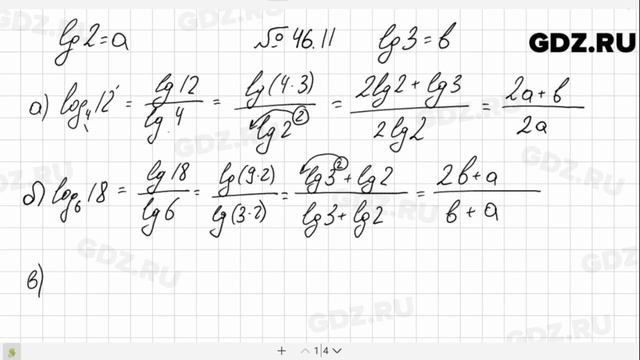 lg2=a № 46.11 lg3=b GDZ.RU
а) log₄12 = lg12/lg4 = lg(4·3)/lg2² = (2lg2+lg3)/(2lg2) = (2a+b)/(2a)
б) log₆18 = lg18/lg6 = lg(9·2)/lg(3·2) = (lg3²+lg2)/(lg3+lg2) = (2b+a)/(b+a)
в)
1|4